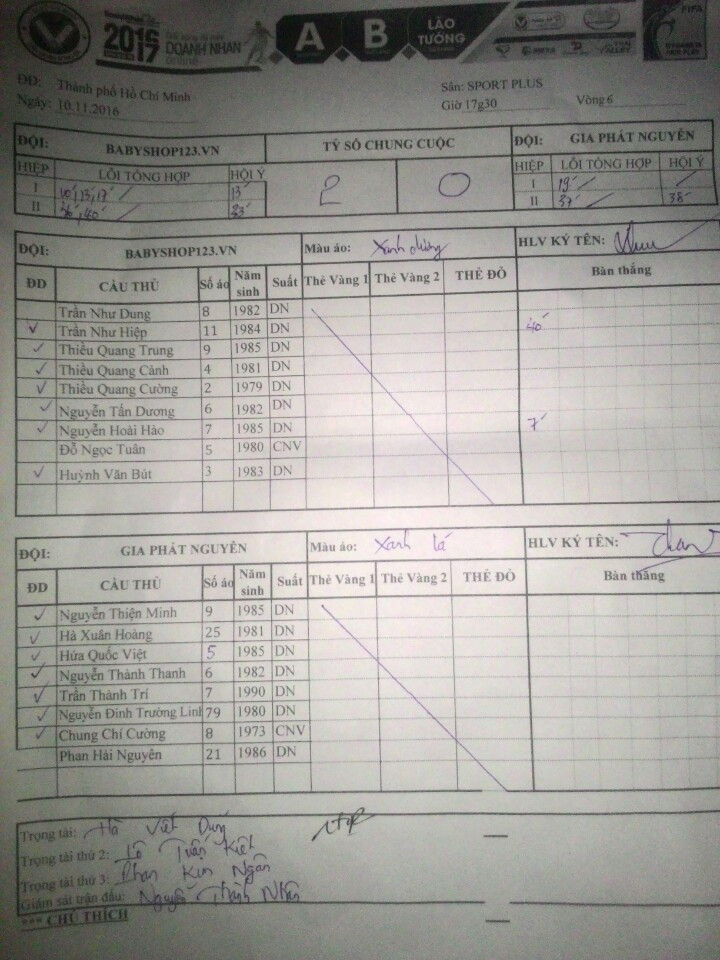 2016 2017
DOANH NHÂN
online
A B LÃO TƯỚNG
FIFA
ĐĐ: Thành phố Hồ Chí Minh Sân: SPORT PLUS
Ngày: 10.11.2016 Giờ 17g30 Vòng 6
ĐỘI: BABYSHOP123.VN TỶ SỐ CHUNG CUỘC ĐỘI: GIA PHÁT NGUYÊN
HIỆP LỖI TỔNG HỢP HỘI Ý 2 0 HIỆP LỖI TỔNG HỢP HỘI Ý
I 10', 13', 17' 13' I 19'
II 40' 33' II 37' 38'
ĐỘI: BABYSHOP123.VN Màu áo: Xanh dương HLV KÝ TÊN:
ĐD CẦU THỦ Số áo Năm sinh Suất Thẻ Vàng 1 Thẻ Vàng 2 THẺ ĐỎ Bàn thắng
Trần Như Dung 8 1982 DN
✓ Trần Như Hiệp 11 1984 DN 40'
✓ Thiều Quang Trung 9 1985 DN
✓ Thiều Quang Cảnh 4 1981 DN
✓ Thiều Quang Cường 2 1979 DN
✓ Nguyễn Tấn Dương 6 1982 DN
✓ Nguyễn Hoài Hảo 7 1985 DN 7'
Đỗ Ngọc Tuân 5 1980 CNV
✓ Huỳnh Văn Bút 3 1983 DN
ĐỘI: GIA PHÁT NGUYÊN Màu áo: Xanh lá HLV KÝ TÊN:
ĐD CẦU THỦ Số áo Năm sinh Suất Thẻ Vàng 1 Thẻ Vàng 2 THẺ ĐỎ Bàn thắng
✓ Nguyễn Thiện Minh 9 1985 DN
✓ Hà Xuân Hoàng 25 1981 DN
✓ Hứa Quốc Việt 5 1985 DN
✓ Nguyễn Thành Thanh 6 1982 DN
✓ Trần Thành Trí 7 1990 DN
✓ Nguyễn Đình Trường Linh 79 1980 DN
✓ Chung Chí Cường 8 1973 CNV
Phan Hải Nguyên 21 1986 DN
Trọng tài: Hà Viết Dũng
Trọng tài thứ 2: Lô Tuấn Kiệt
Trọng tài thứ 3: Phan Kim Ngân
Giám sát trận đấu: Nguyễn Thành Nhân
*** CHÚ THÍCH